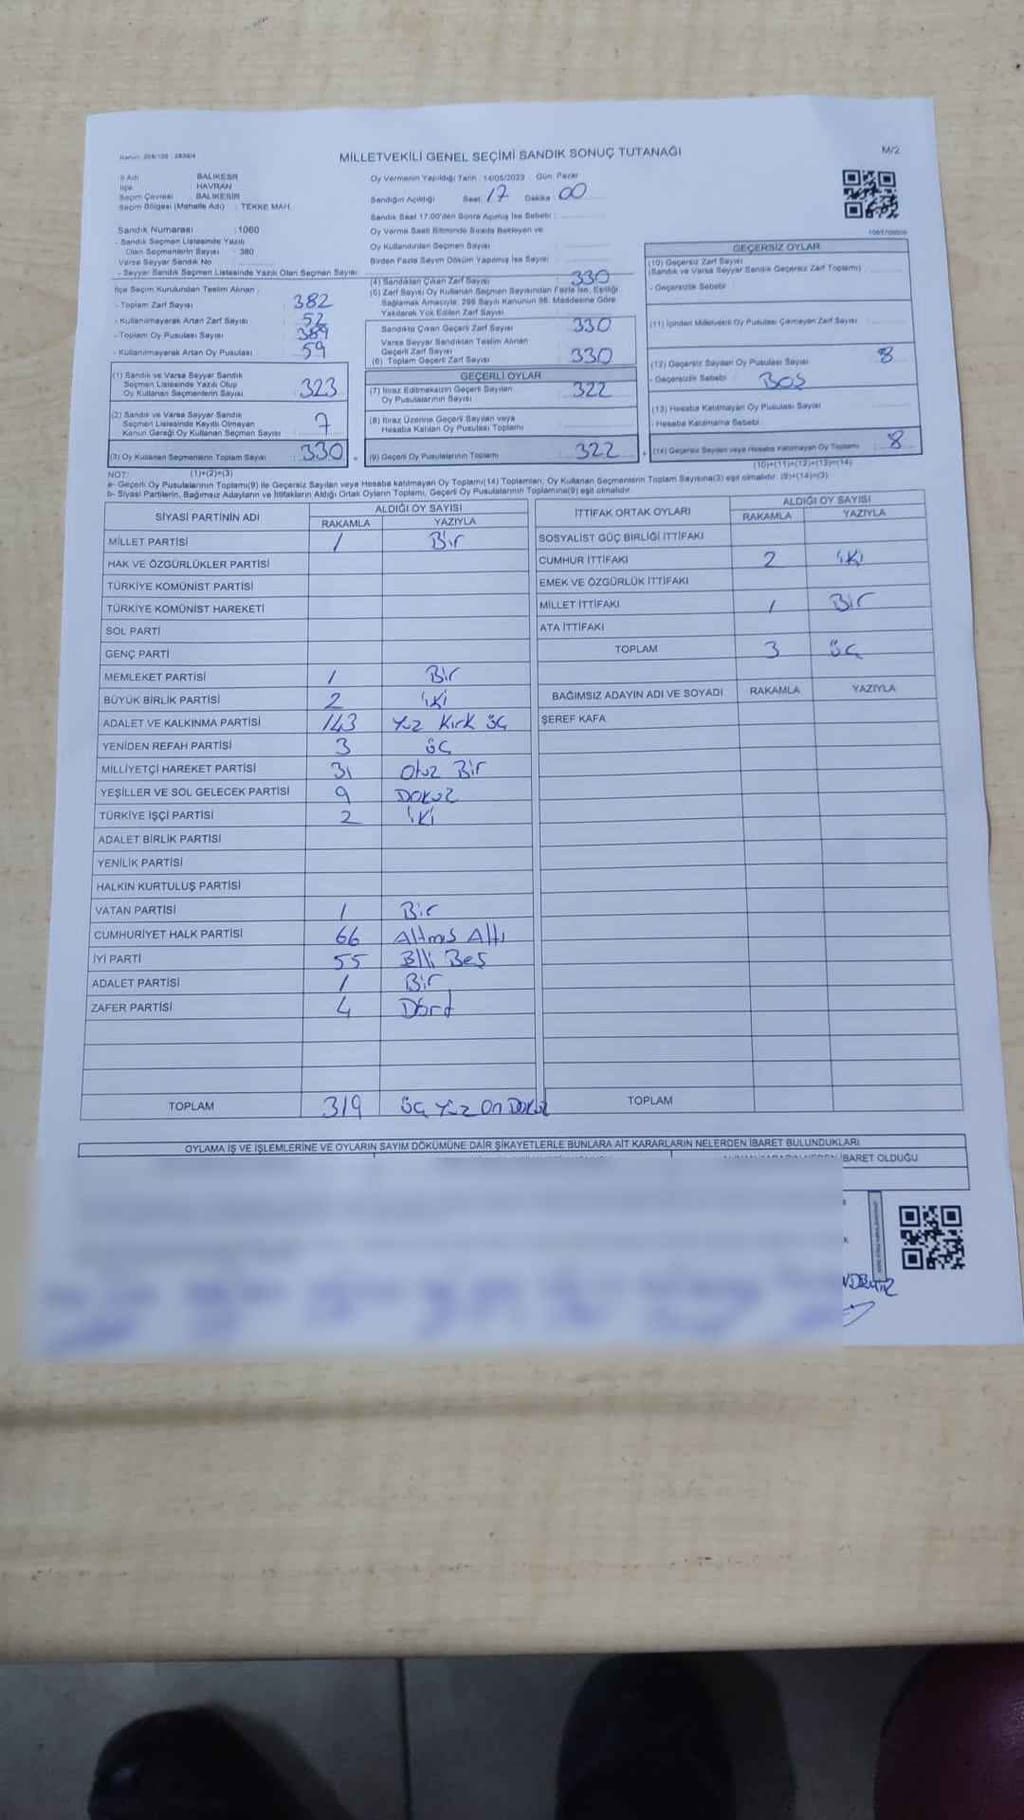 MİLLETVEKİLİ GENEL SEÇİMİ SANDIK SONUÇ TUTANAĞI
M/2
İl Adı BALIKESİR
İlçe HAVRAN
Seçim Çevresi BALIKESİR
Seçim Bölgesi (Mahalle Adı) : TEKKE MAH.
Sandık Numarası :1060
- Sandık Seçmen Listesinde Yazılı
Olan Seçmenlerin Sayısı : 380
Varsa Seyyar Sandık No
- Seyyar Sandık Seçmen Listesinde Yazılı Olan Seçmen Sayısı
İlçe Seçim Kurulundan Teslim Alınan
- Toplam Zarf Sayısı 382
- Kullanılmayarak Artan Zarf Sayısı 52
- Toplam Oy Pusulası Sayısı 389
- Kullanılmayarak Artan Oy Pusulası 59
(1) Sandık ve Varsa Seyyar Sandık
Seçmen Listesinde Yazılı Olup
Oy Kullanan Seçmenlerin Sayısı 323
(2) Sandık ve Varsa Seyyar Sandık
Seçmen Listesinde Kayıtlı Olmayan
Kanun Gereği Oy Kullanan Seçmen Sayısı 7
(3) Oy Kullanan Seçmenlerin Toplam Sayısı 330
Oy Vermenin Yapıldığı Tarih : 14/05/2023 Gün: Pazar
Sandığın Açıldığı Saat: 17 Dakika: 00
Sandık Saat 17:00'den Sonra Açılmış İse Sebebi :
Oy Verme Saati Bitiminde Sırada Bekleyen ve
Oy Kullandırılan Seçmen Sayısı
Birden Fazla Sayım Döküm Yapılmış İse Sayısı
(4) Sandıktan Çıkan Zarf Sayısı 330
(5) Zarf Sayısı Oy Kullanan Seçmen Sayısından Fazla İse, Eşitliği
Sağlamak Amacıyla, 298 Sayılı Kanunun 98. Maddesine Göre
Yakılarak Yok Edilen Zarf Sayısı
Sandıkta Çıkan Geçerli Zarf Sayısı 330
Varsa Seyyar Sandıktan Teslim Alınan
Geçerli Zarf Sayısı
(6) Toplam Geçerli Zarf Sayısı 330
GEÇERLİ OYLAR
(7) İtiraz Edilmeksizin Geçerli Sayılan
Oy Pusulalarının Sayısı 322
(8) İtiraz Üzerine Geçerli Sayılan veya
Hesaba Katılan Oy Pusulası Toplamı
(9) Geçerli Oy Pusulalarının Toplamı 322
GEÇERSİZ OYLAR
(10) Geçersiz Zarf Sayısı
(Sandık ve Varsa Seyyar Sandık Geçersiz Zarf Toplamı)
- Geçersizlik Sebebi
(11) İçinden Milletvekili Oy Pusulası Çıkmayan Zarf Sayısı
(12) Geçersiz Sayılan Oy Pusulası Sayısı 8
- Geçersizlik Sebebi BOŞ
(13) Hesaba Katılmayan Oy Pusulası Sayısı
- Hesaba Katılmama Sebebi
(14) Geçersiz Sayılan veya Hesaba Katılmayan Oy Toplamı 8
NOT: (1)+(2)=(3) (10)+(11)+(12)+(13)=(14)
a- Geçerli Oy Pusulalarının Toplamı(9) ile Geçersiz Sayılan veya Hesaba katılmayan Oy Toplamı(14) Toplamları, Oy Kullanan Seçmenlerin Toplam Sayısına(3) eşit olmalıdır. (9)+(14)=(3)
b- Siyasi Partilerin, Bağımsız Adayların ve İttifakların Aldığı Ortak Oyların Toplamı, Geçerli Oy Pusulalarının Toplamına(9) eşit olmalıdır
SİYASİ PARTİNİN ADI ALDIĞI OY SAYISI
RAKAMLA YAZIYLA
MİLLET PARTİSİ 1 Bir
HAK VE ÖZGÜRLÜKLER PARTİSİ
TÜRKİYE KOMÜNİST PARTİSİ
TÜRKİYE KOMÜNİST HAREKETİ
SOL PARTİ
GENÇ PARTİ
MEMLEKET PARTİSİ 1 Bir
BÜYÜK BİRLİK PARTİSİ 2 iki
ADALET VE KALKINMA PARTİSİ 143 Yüz Kırk üç
YENİDEN REFAH PARTİSİ 3 üç
MİLLİYETÇİ HAREKET PARTİSİ 31 Otuz Bir
YEŞİLLER VE SOL GELECEK PARTİSİ 9 Dokuz
TÜRKİYE İŞÇİ PARTİSİ 2 iki
ADALET BİRLİK PARTİSİ
YENİLİK PARTİSİ
HALKIN KURTULUŞ PARTİSİ
VATAN PARTİSİ 1 Bir
CUMHURİYET HALK PARTİSİ 66 Altmış Altı
İYİ PARTİ 55 Elli Beş
ADALET PARTİSİ 1 Bir
ZAFER PARTİSİ 4 Dört
TOPLAM 319 üç Yüz On Dokuz
İTTİFAK ORTAK OYLARI ALDIĞI OY SAYISI
RAKAMLA YAZIYLA
SOSYALİST GÜÇ BİRLİĞİ İTTİFAKI
CUMHUR İTTİFAKI 2 iki
EMEK VE ÖZGÜRLÜK İTTİFAKI
MİLLET İTTİFAKI 1 Bir
ATA İTTİFAKI
TOPLAM 3 üç
BAĞIMSIZ ADAYIN ADI VE SOYADI RAKAMLA YAZIYLA
ŞEREF KAFA
TOPLAM
OYLAMA İŞ VE İŞLEMLERİNE VE OYLARIN SAYIM DÖKÜMÜNE DAİR ŞİKAYETLERLE BUNLARA AİT KARARLARIN NELERDEN İBARET BULUNDUKLARI
İBARET OLDUĞU